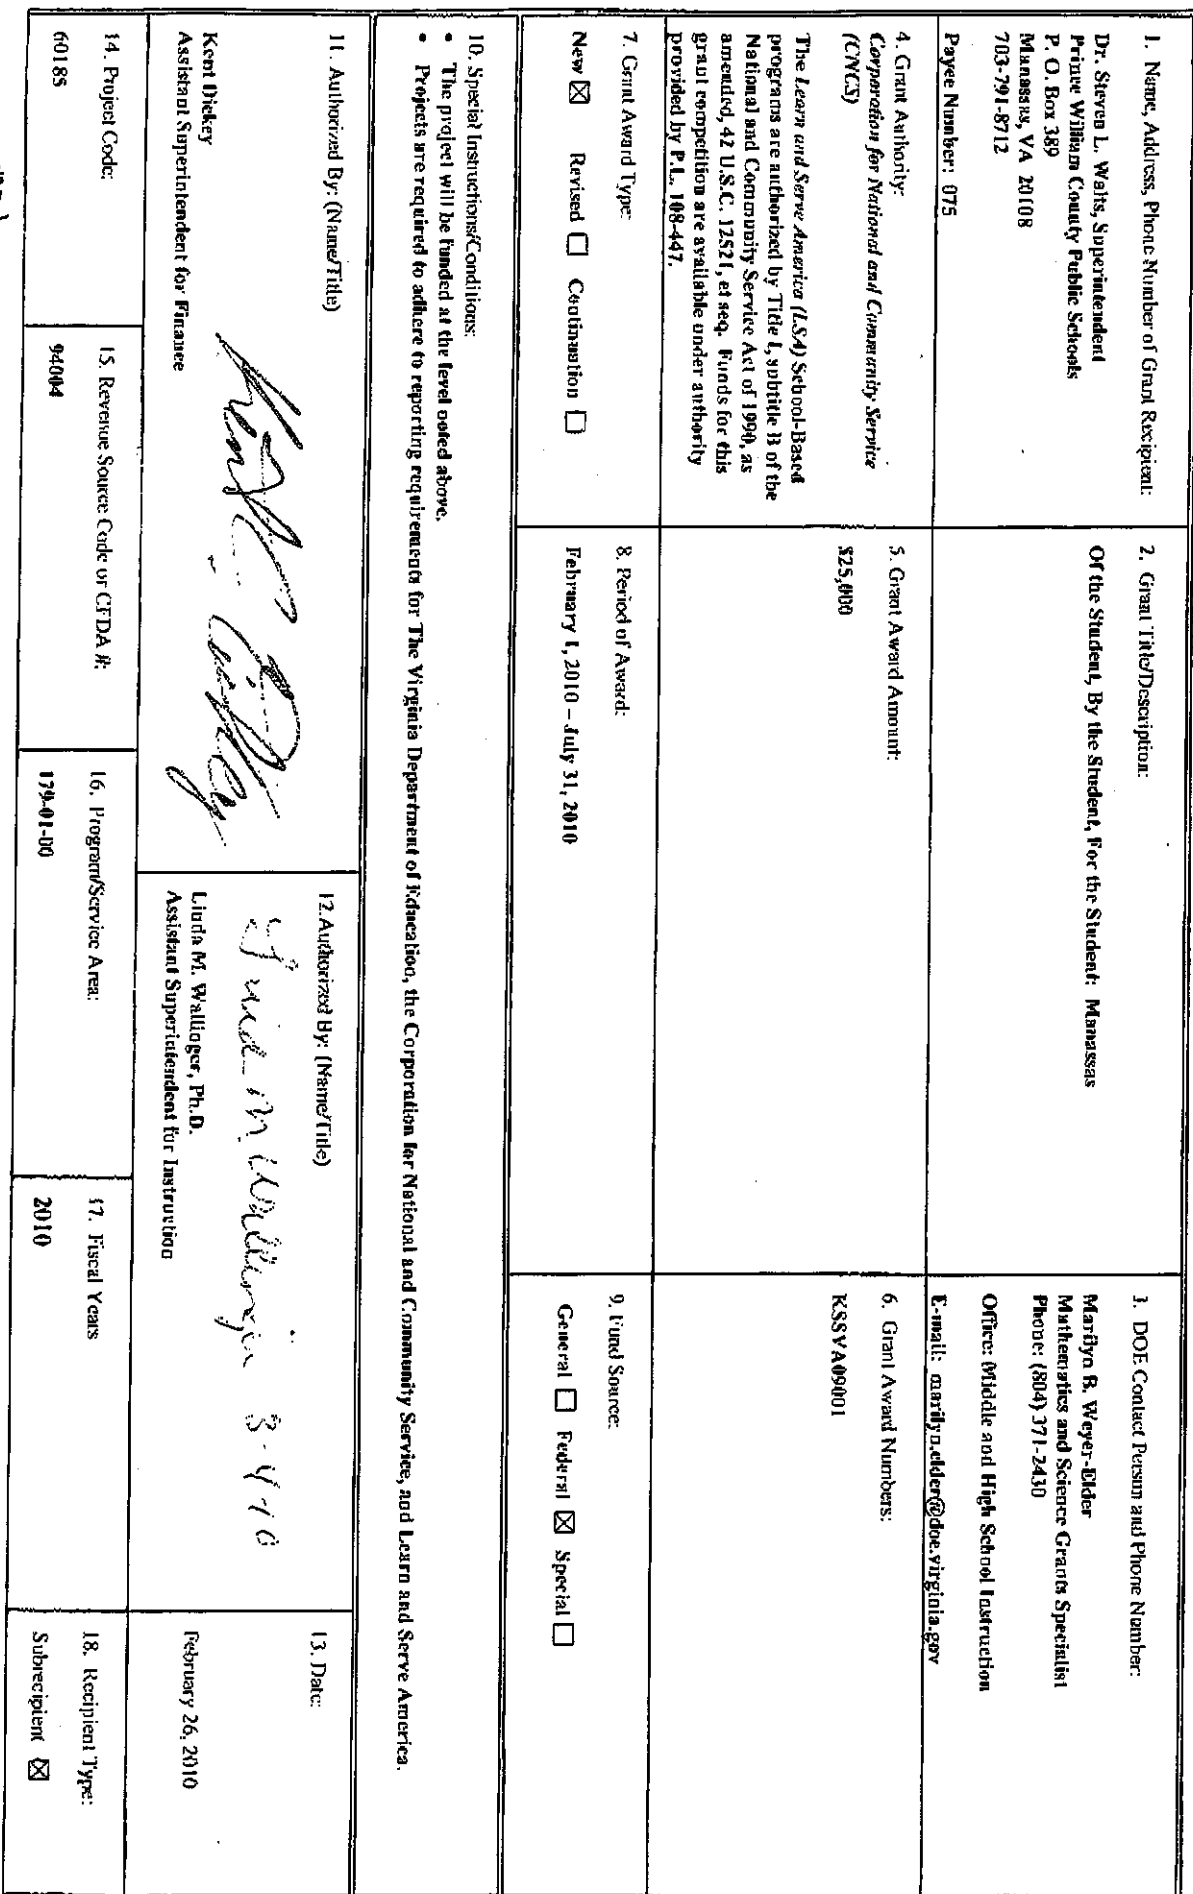 1. Name, Address, Phone Number of Grant Recipient:
Dr. Steven L. Walts, Superintendent
Prince William County Public Schools
P. O. Box 389
Manassas, VA 20108
703-791-8712
Payee Number: 075
2. Grant Title/Description:
Of the Student, By the Student, For the Student: Manassas
3. DOE Contact Person and Phone Number:
Marilyn B. Weyer-Elder
Mathematics and Science Grants Specialist
Phone: (804) 371-2430
Office: Middle and High School Instruction
E-mail: marilyn.elder@doe.virginia.gov
4. Grant Authority:
Corporation for National and Community Service
(CNCS)
The Learn and Serve America (LSA) School-Based
programs are authorized by Title I, subtitle B of the
National and Community Service Act of 1990, as
amended, 42 U.S.C. 12521, et seq. Funds for this
grant competition are available under authority
provided by P.L. 108-447.
5. Grant Award Amount:
$25,000
6. Grant Award Numbers:
KSSVA09001
7. Grant Award Type:
New ☒ Revised ☐ Continuation ☐
8. Period of Award:
February 1, 2010 – July 31, 2010
9. Fund Source:
General ☐ Federal ☒ Special ☐
10. Special Instructions/Conditions:
• The project will be funded at the level noted above.
• Projects are required to adhere to reporting requirements for The Virginia Department of Education, the Corporation for National and Community Service, and Learn and Serve America.
11. Authorized By: (Name/Title)
Kent Dickey
Assistant Superintendent for Finance
12. Authorized By: (Name/Title)
Linda M Wallinger 3-4-10
Linda M. Wallinger, Ph.D.
Assistant Superintendent for Instruction
13. Date:
February 26, 2010
14. Project Code:
60185
15. Revenue Source Code or CFDA #:
94004
16. Program/Service Area:
179-01-00
17. Fiscal Years
2010
18. Recipient Type:
Subrecipient ☒